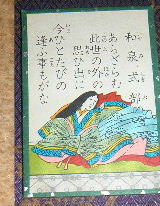 和泉式部
あらざらむ
此世の外の
思ひ出に
今ひとたびの
逢ふ事もがな